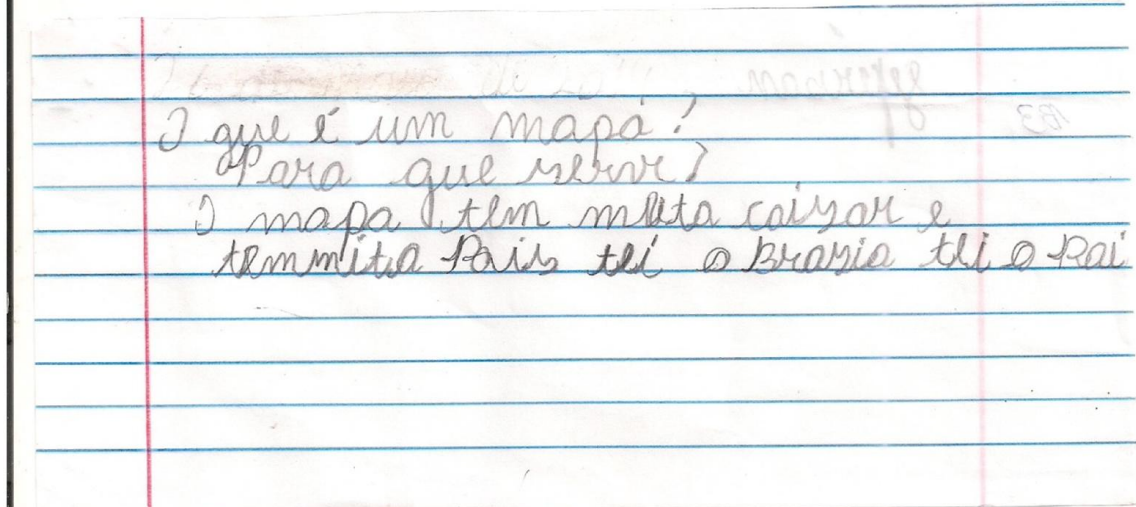 O que é um mapa?
Para que serve?
O mapa tem muta coisar e
temmita Pais tei o Brasia tei o Pai